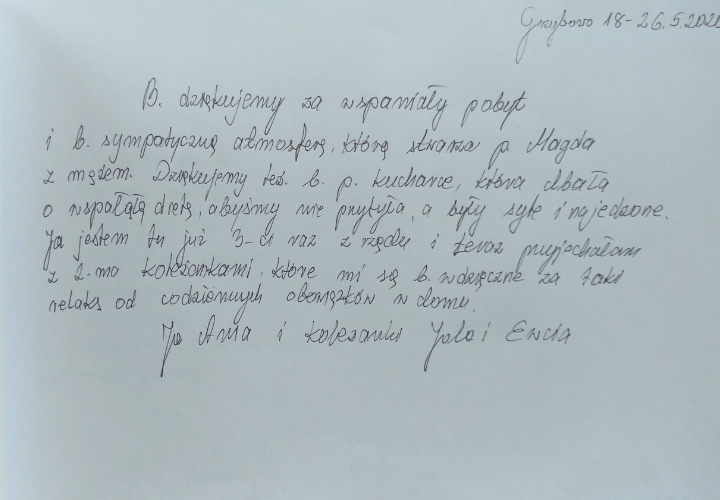 Grzybowo 18-26.5.202
B. dziękujemy za wspaniały pobyt
i b. sympatyczną atmosferę, którą stwarza p. Magda
z mężem. Dziękujemy też b. p. kucharce, która dbała
o wspałątą dietę, abyśmy nie przytyła, a były syte i najedzone.
Ja jestem tu już 3-ci raz z rzędu i teraz przyjechałam
z 2-ma koleżankami, które mi są b. wdzięczne za taki
relaks od codziennych obowiązków w domu.
Ja Ania i koleżanki Jola i Ewcia